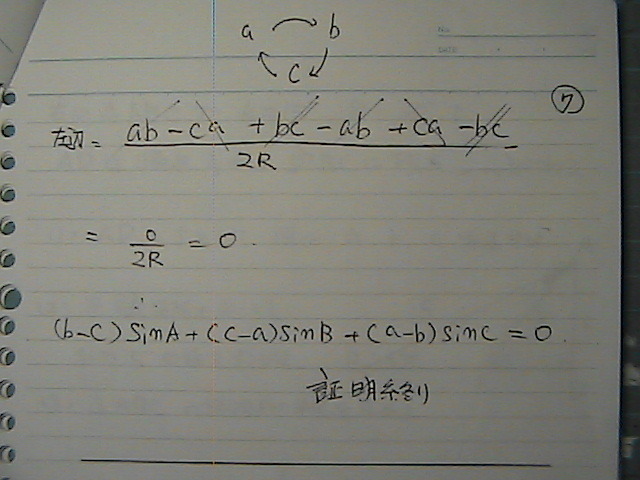 a b
c
No.
DATE
⑦
左辺 = ab - ca + bc - ab + ca - bc
2R
= 0/2R = 0.
∴
(b-c) sinA + (c-a) sinB + (a-b) sinC = 0.
証明終り